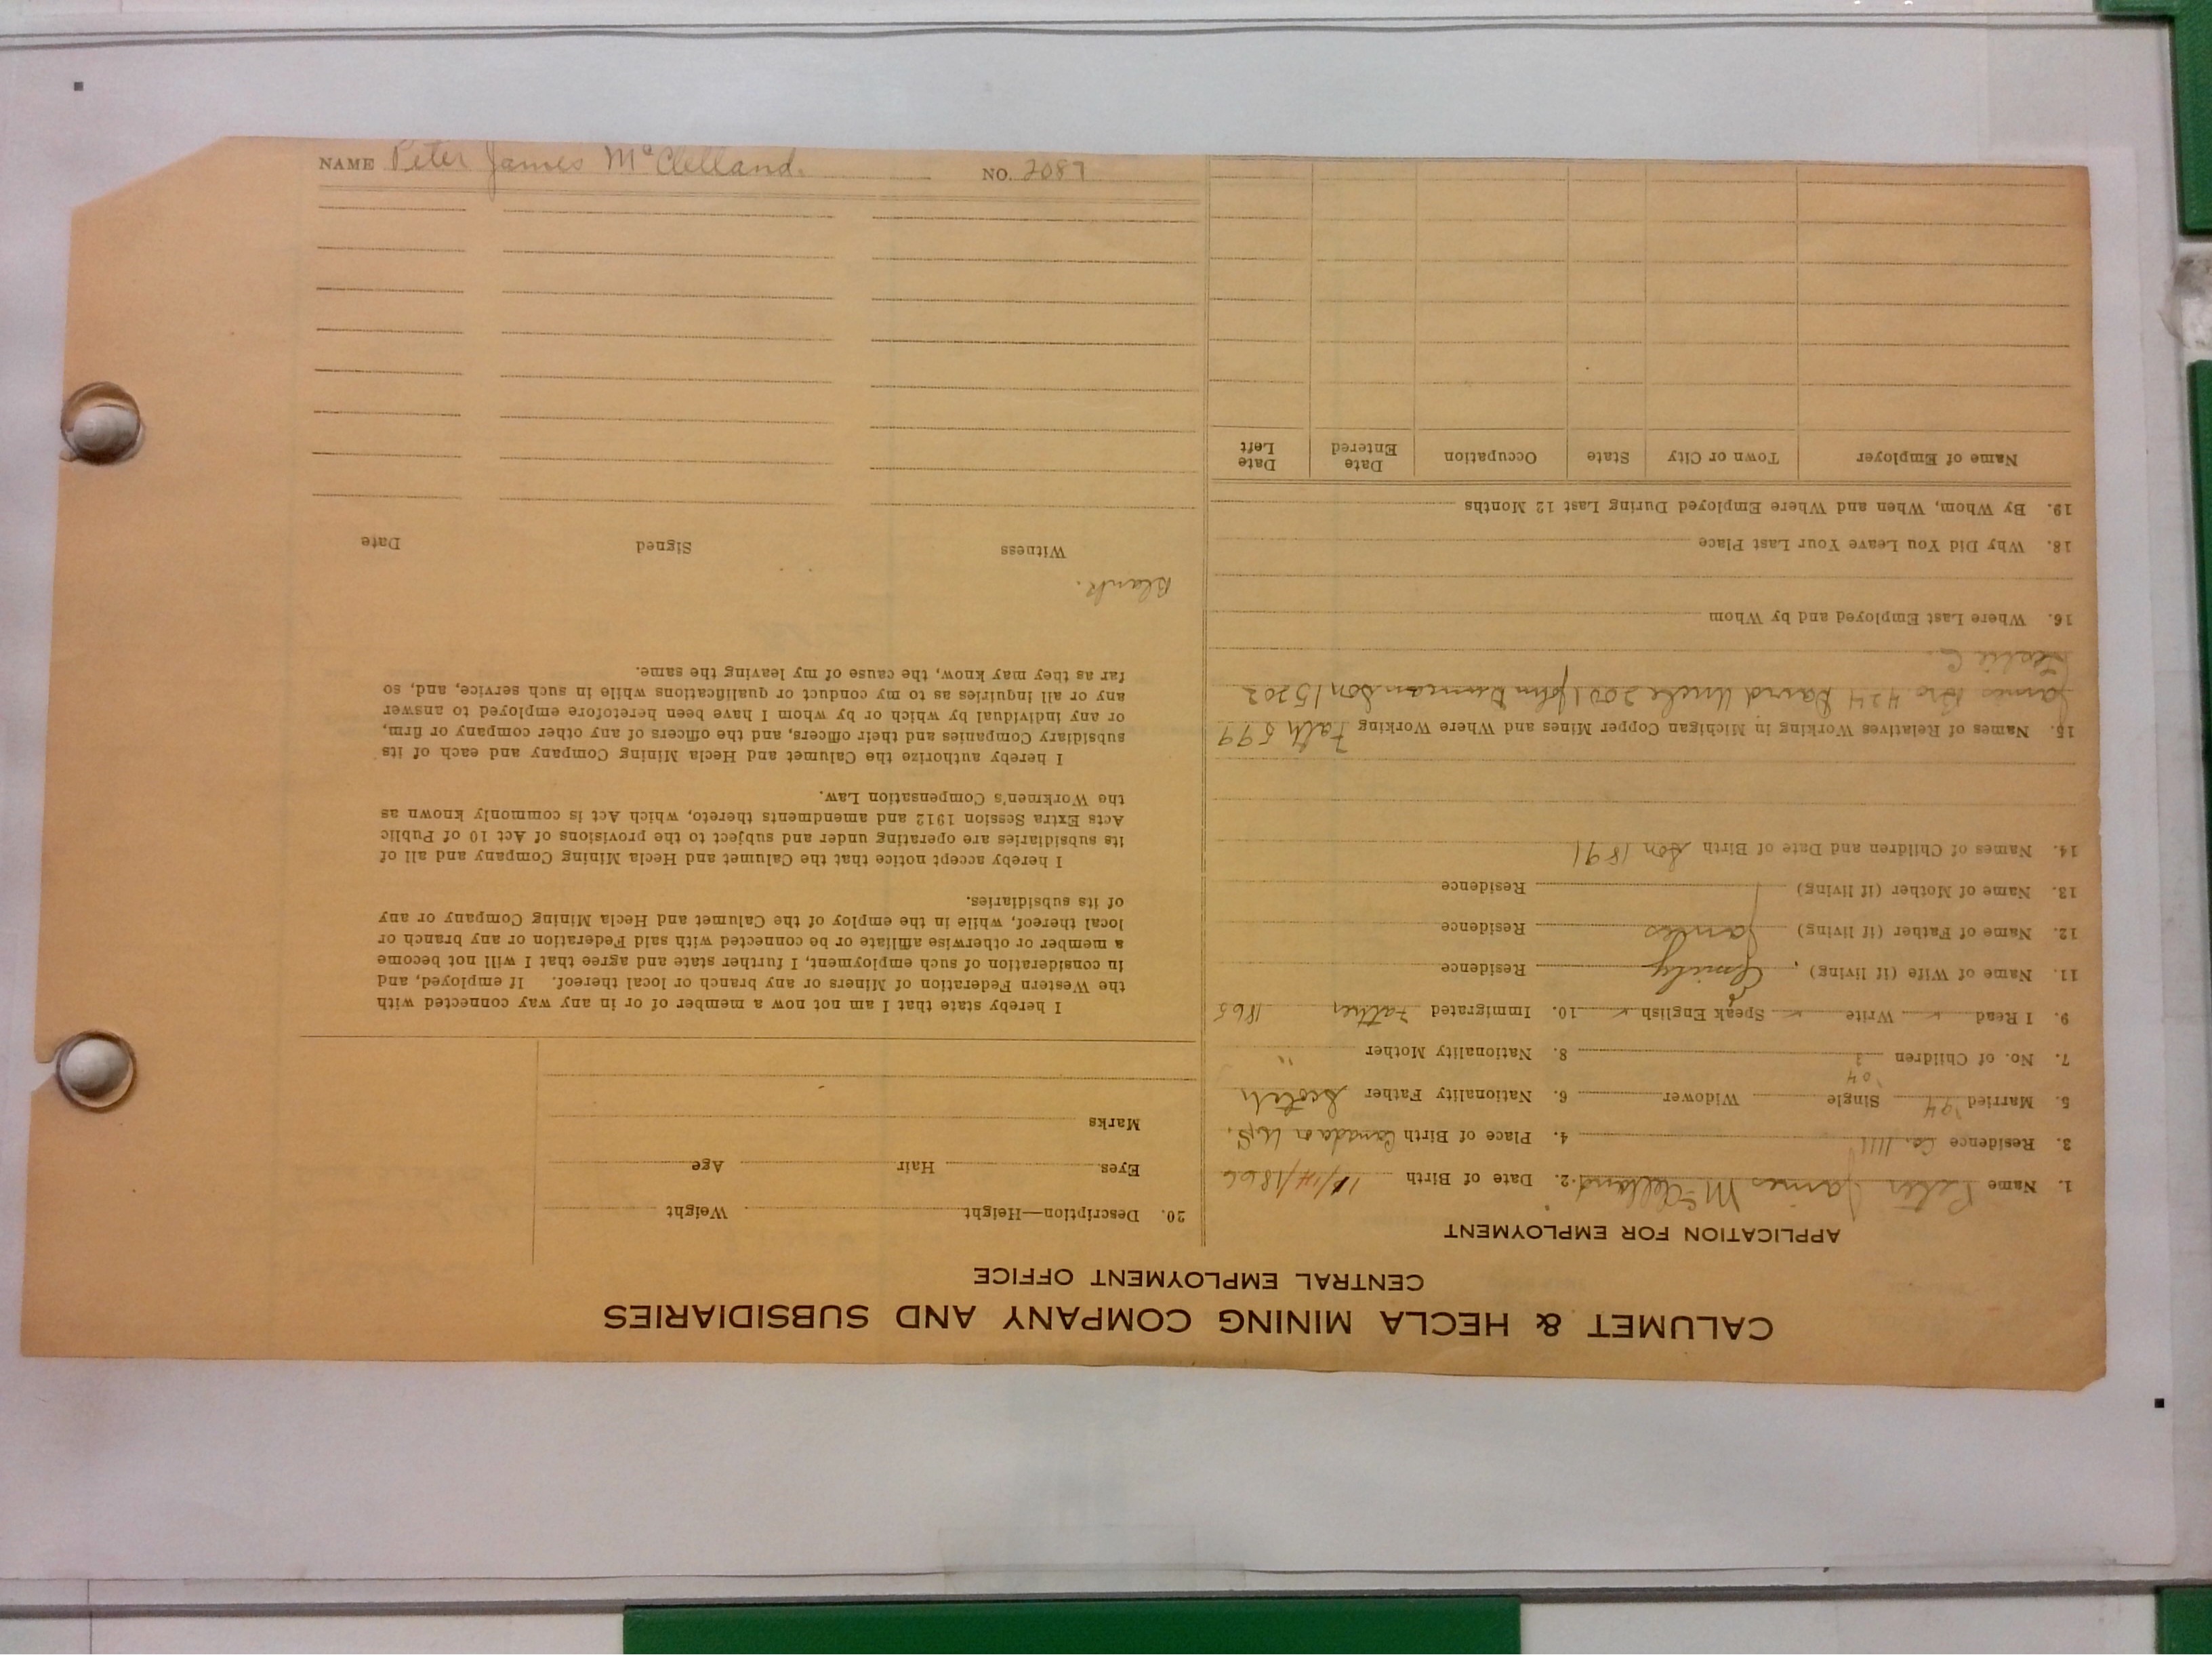 CALUMET & HECLA MINING COMPANY AND SUBSIDIARIES
CENTRAL EMPLOYMENT OFFICE
APPLICATION FOR EMPLOYMENT
1. Name Peter James McClelland 2. Date of Birth /14/1866
3. Residence Co. 1111 4. Place of Birth Canada U.S.
5. Married '94 '04 Single Widower 6. Nationality Father Scotch
7. No. of Children 3 8. Nationality Mother "
9. I Read ✓ Write ✓ Speak English ✓ 10. Immigrated Father 1865
11. Name of Wife (if living) Emily Residence
12. Name of Father (if living) James Residence
13. Name of Mother (if living) Residence
14. Names of Children and Date of Birth Son 1891
15. Names of Relatives Working in Michigan Copper Mines and Where Working Fath 599
James Bro 424 David Uncle 2001 John Duncan Son 15202
Leslie C.
16. Where Last Employed and by Whom
18. Why Did You Leave Your Last Place
19. By Whom, When and Where Employed During Last 12 Months
Name of Employer Town or City State Occupation Date Entered Date Left
20. Description—Height Weight
Eyes Hair Age
Marks
I hereby state that I am not now a member of or in any way connected with
the Western Federation of Miners or any branch or local thereof. If employed, and
in consideration of such employment, I further state and agree that I will not become
a member or otherwise affiliate or be connected with said Federation or any branch or
local thereof, while in the employ of the Calumet and Hecla Mining Company or any
of its subsidiaries.
I hereby accept notice that the Calumet and Hecla Mining Company and all of
its subsidiaries are operating under and subject to the provisions of Act 10 of Public
Acts Extra Session 1912 and amendments thereto, which Act is commonly known as
the Workmen's Compensation Law.
I hereby authorize the Calumet and Hecla Mining Company and each of its
subsidiary Companies and their officers, and the officers of any other company or firm,
or any individual by which or by whom I have been heretofore employed to answer
any or all inquiries as to my conduct or qualifications while in such service, and, so
far as they may know, the cause of my leaving the same.
Blank.
Witness Signed Date
NAME Peter James McClelland. NO. 2087